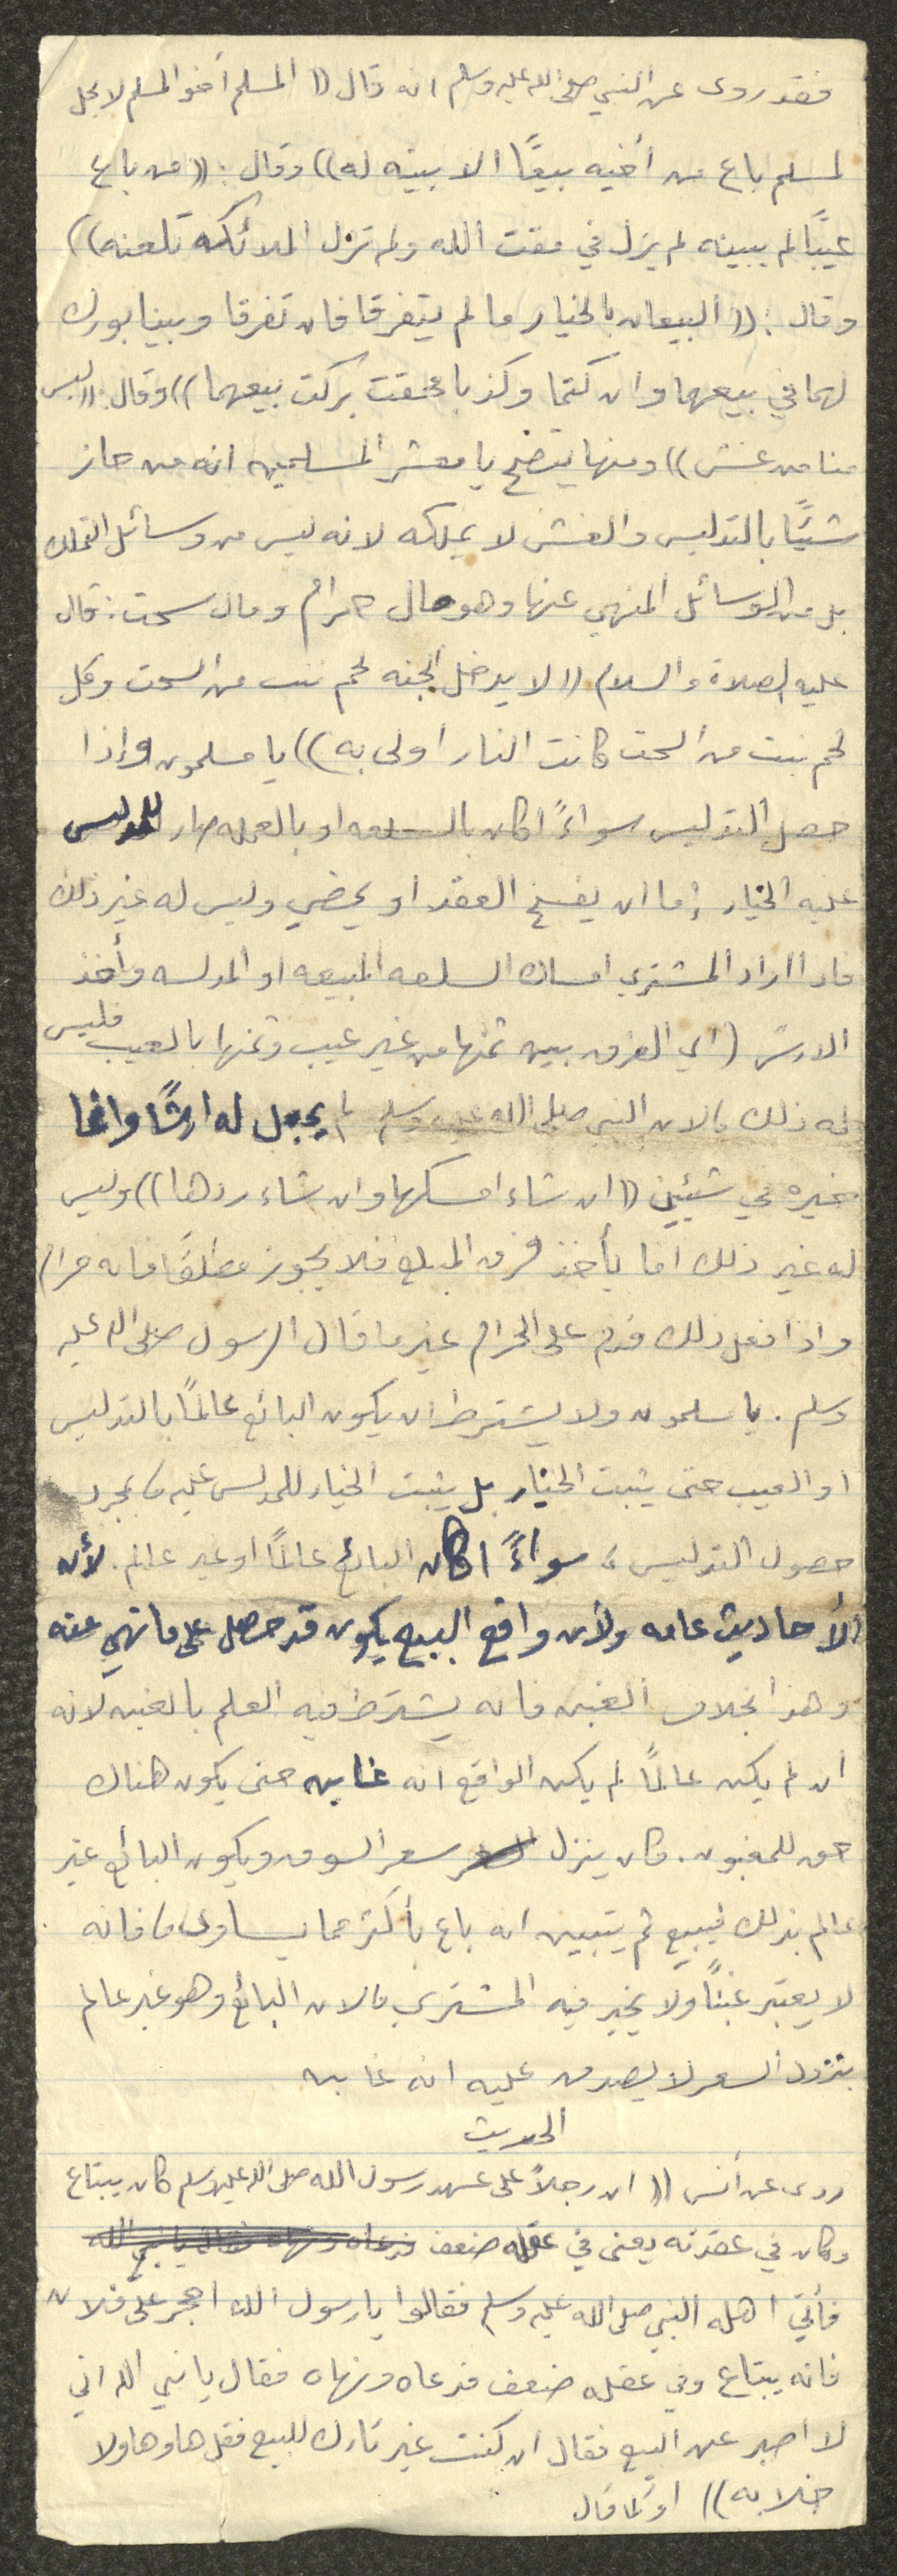 فقد روى عن النبي صلى الله عليه وسلم انه قال (( المسلم أخو المسلم لا يحل
لمسلم باع من أخيه بيعًا الا بينه له)) وقال: ((من باع
عيبًا لم يبينه لم يزل في مقت الله ولم تزل الملائكه تلعنه))
وقال: (( البيعان بالخيار ما لم يتفرقا فان تفرقا وبينا بورك
لهما في بيعهما وان كتما وكذبا محقت بركت بيعهما)) وقال: ((ليس
منا من غش)) ومنها يتضح يا معشر المسلمين انه من حاز
شيئًا بالتدليس والغش لا يملكه لانه ليس من وسائل التملك
بل من الوسائل المنهي عنها وهو مال حرام ومال سحت: قال
عليه الصلاة والسلام (( لا يدخل الجنه لحم نبت من السحت وكل
لحم نبت من السحت كانت النار أولى به)) يا مسلمون وإذا
حصل التدليس سواءً اكان بالسلعه او بالعمله صار للمدلس
عليه الخيار إما ان يفسخ العقد او يمضي وليس له غير ذلك
فاذا اراد المشتري امساك السلعه المبيعه او المدلسه وأخذ
الارش (اي الفرق بين ثمنها من غير عيب وثمنها بالعيب فليس
له ذلك، لان النبي صلى الله عليه وسلم لم يجعل له ارشًا وانما
خيره في شيئين ((ان شاء امسكها وان شاء ردها)) وليس
له غير ذلك اما يأخذ فرق المبلغ فلا يجوز مطلقًا فانه حرام
واذا فعل ذلك قدم على الحرام غير ما قال الرسول صلى الله عليه
وسلم. يا مسلمون ولا يشترط ان يكون البائع عالمًا بالتدليس
او العيب حتى يثبت الخيار بل يثبت الخيار للمدلس عليه، بمجرد
حصول التدليس، سواءً اكان البائع عالمًا او غير عالم. لأن
الأحاديث عامه ولأن واقع البيع يكون قد حصل على ما نهي عنه
وهذا بخلاف الغبن فانه يشترط فيه العلم بالغبن لانه
ان لم يكن عالمًا لم يكن الواقع انه غابن حتى يكون هناك
حق للمغبون. كان ينزل سعر السوق ويكون البائع غير
عالم بذلك فيبيع ثم يتبين انه باع بأكثر مما يساوى، فانه
لا يعتبر غبنًا ولا يخير فيه المشتري، لان البائع وهو غير عالم
بنزول السعر لا يصدق عليه انه غابن
الحديث
روى عن أنس (( ان رجلاً على عهد رسول الله صلى الله عليه وسلم كان يبتاع
وكان في عقدته يعنى في عقله ضعف فدعاه ونهاه فقال يا نبي الله
فأتي اهله النبي صلى الله عليه وسلم فقالوا يا رسول الله احجر على فلان
فانه يبتاع وفي عقله ضعف فدعاه ونهاه فقال يا نبي الله اني
لا اصبر عن البيع فقال ان كنت غير تارك للبيع فقل ها وها ولا
خلابه)) او كما قال